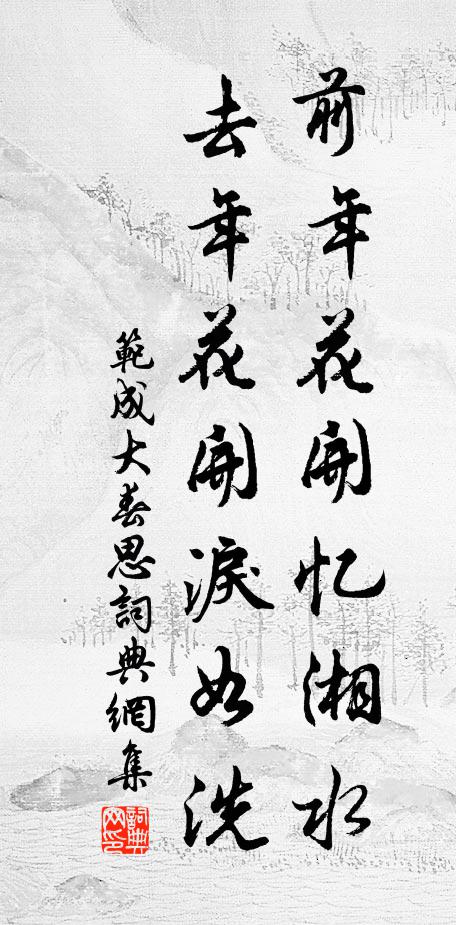 前年花開忆湘水
去年花開淚如洗
範成大春思詞典網集
詞典
网印